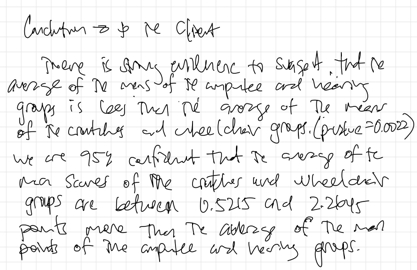 Conclusion → to the Client
There is strong evidence to suggest, that the
average of the means of the amputee and hearing
groups is less than the average of the means
of the crutches and wheelchair groups. (pvalue = 0.0022)
we are 95% confident that the average of the
mean scores of the crutches and wheelchair
groups are between 0.5215 and 2.2645
points more than the average of the mean
points of the amputee and hearing groups.